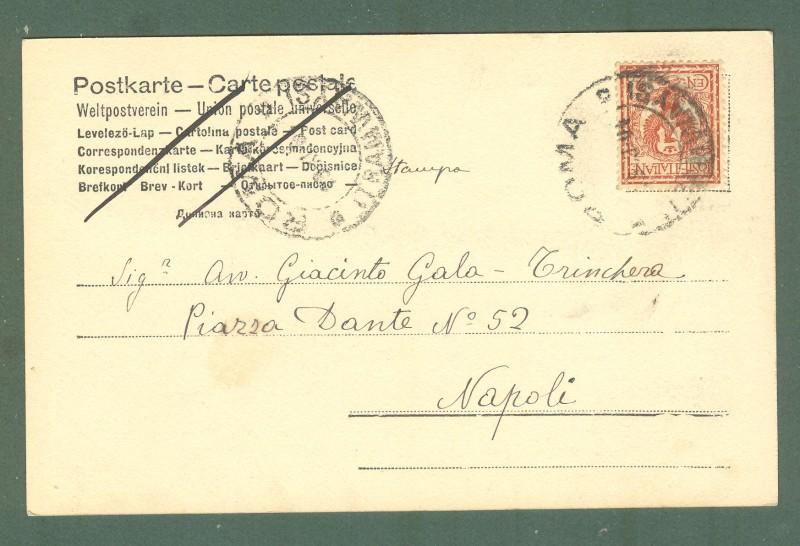 Postkarte — Carte postale
Weltpostverein — Union postale universelle
Levelező-Lap — Cartolina postale — Post card
Correspondenzkarte — Karta korespondencyjna
Korespondenční listek — Briefkaart — Dopisnice
Brefkort Brev-Kort — Открытое письмо —
Дописна карта
Stampa
ROMA
ROMA
POSTE ITALIANE
Sigr Av. Giacinto Gala - Trinchera
Piazza Dante No 52
Napoli